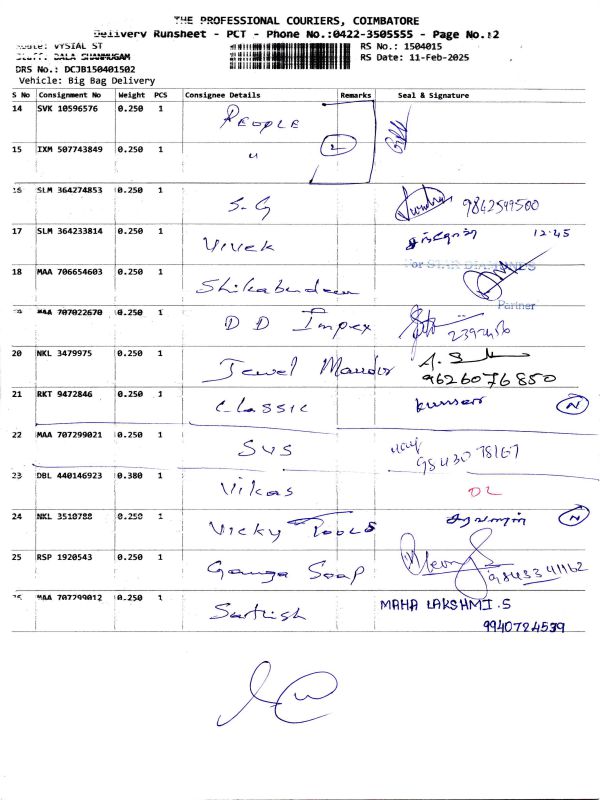 THE PROFESSIONAL COURIERS, COIMBATORE
Delivery Runsheet - PCT - Phone No.:0422-3505555 - Page No.:2
Route: VYSIAL ST RS No.: 1504015
Staff: BALA SHANMUGAM RS Date: 11-Feb-2025
DRS No.: DCJB150401502
Vehicle: Big Bag Delivery
S No Consignment No Weight PCS Consignee Details Remarks Seal & Signature
14 SVK 10596576 0.250 1 PEOPLE
15 IXM 507743849 0.250 1 " 2
16 SLM 364274853 0.250 1 S-G 9842549500
17 SLM 364233814 0.250 1 Vivek 12.45
18 MAA 706654603 0.250 1 For STAR DIAMONDS
Partner
19 MAA 707022670 0.250 1 D D Impex
20 NKL 3479975 0.250 1 Jewel Mandir
9626076850
21 RKT 9472846 0.250 1 Classic N
22 MAA 707299021 0.250 1 SVS
98430 78167
23 DBL 440146923 0.380 1 Vikas DL
24 NKL 3510788 0.250 1 Vicky Tools N
25 RSP 1920543 0.250 1 Ganga Soap 98433 41162
26 MAA 707299012 0.250 1 Sathish MAHA LAKSHMI.S
9940724539